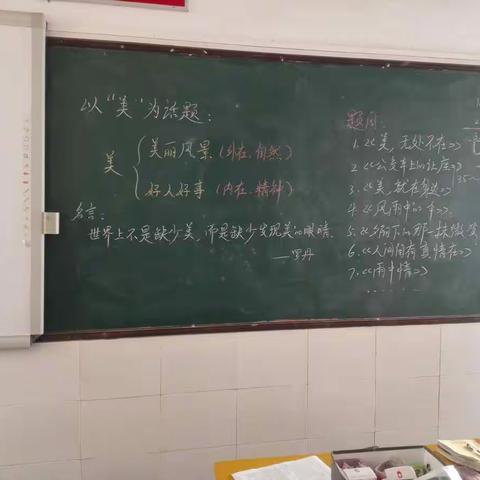 以“美”为话题：
美
美丽风景（外在、自然）
好人好事（内在、精神）
名言：
世界上不是缺少美，而是缺少发现美的眼睛。
——罗丹
题目：
1.《美，无处不在》
2.《公交车上的让座》
3.《美，就在身边》
4.《风雨中的
5.《乡下的那一抹微笑
6.《人间自有真情在》
7.《雨中情》